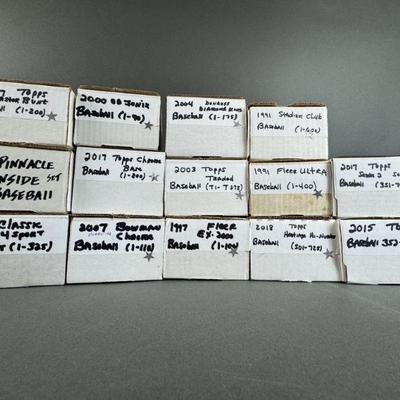 Topps
Bunt
(1-200)
2000
Baseball (1-90)
2004 Donruss
Diamond Kings
Baseball (1-175)
1991 Stadium Club
Baseball (1-600)
PINNACLE
INSIDE SET
BASEBALL
2017 Topps Chrome
Base
Baseball (1-200)
2003 Topps
Traded
Baseball (T1-T275)
1991 Fleer Ultra
Baseball (1-400)
2017 Topps
Baseball (351-7
Classic
4 Sport
(1-325)
2007 Bowman
Chrome
Baseball (1-110)
1997 Fleer
EX-2000
Baseball (1-100)
2018 Topps
Heritage Hi-Number
Baseball (501-725)
2015 To
Baseball 352-